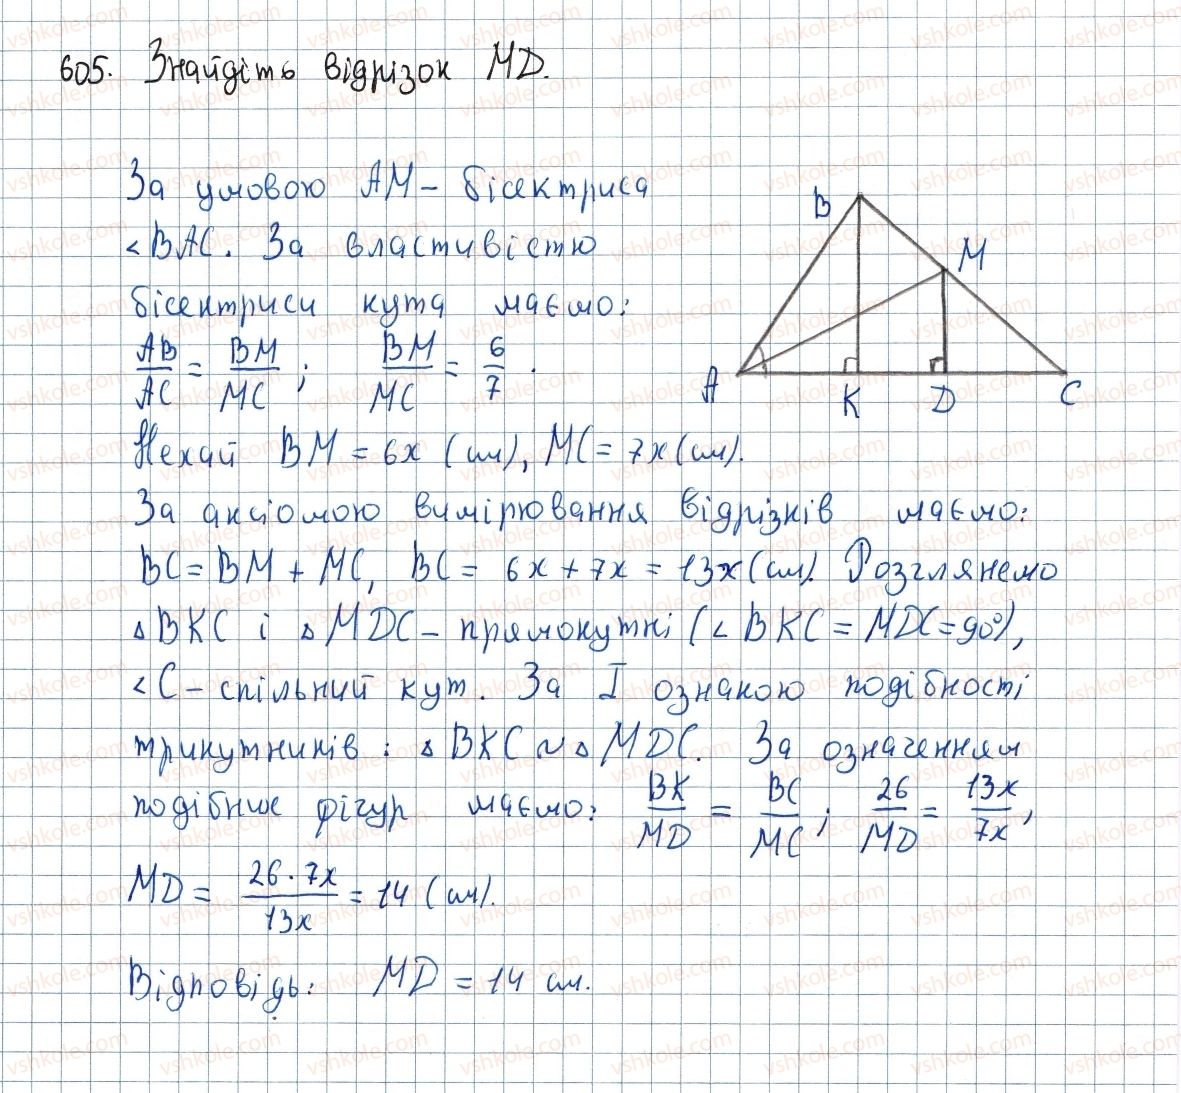 605. Знайдіть відрізок MD.
За умовою AM – бісектриса
<BAC. За властивістю
бісектриси кута маємо:
AB/AC = BM/MC ; BM/MC = 6/7 .
Нехай BM = 6x (см), MC = 7x (см).
За аксіомою вимірювання відрізків маємо:
BC = BM + MC, BC = 6x + 7x = 13x (см). Розглянемо
△BKC і △MDC – прямокутні (<BKC = MDC = 90°),
<C – спільний кут. За I ознакою подібності
трикутників: △BKC ~ △MDC. За означенням
подібних фігур маємо: BK/MD = BC/MC ; 26/MD = 13x/7x ,
MD = 26·7x/13x = 14 (см).
Відповідь: MD = 14 см.
B
M
A
K
D
C
vshkole.com